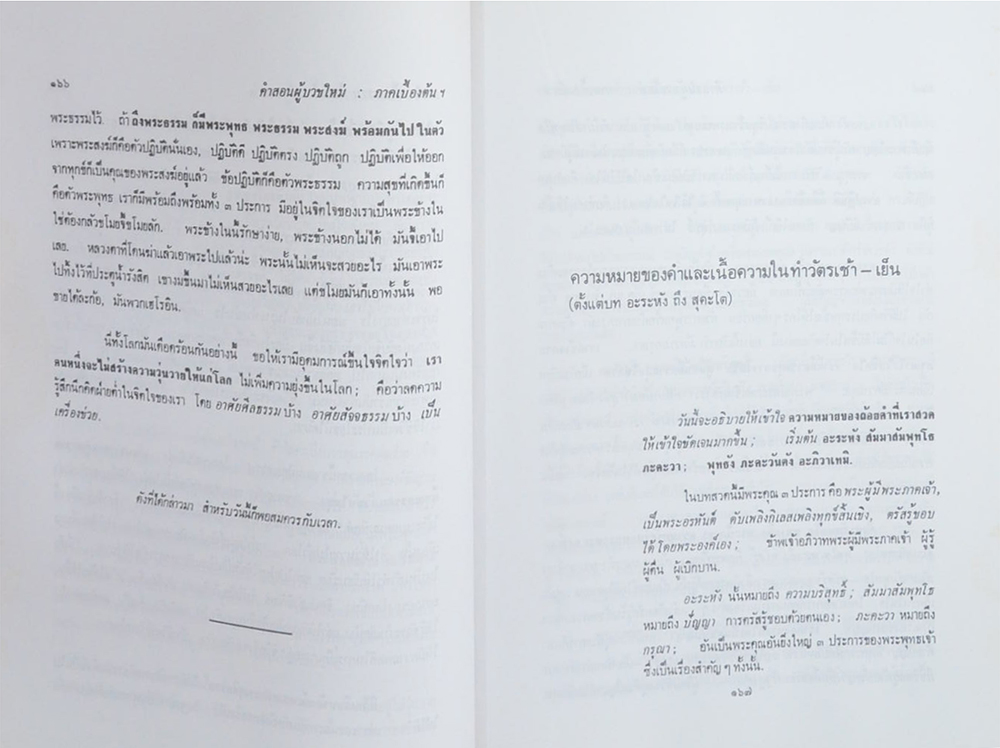 ๑๖๖
คำสอนผู้บวชใหม่ : ภาคเบื้องต้น ฯ
พระธรรมไว้. ถ้า ถึงพระธรรม ก็มีพระพุทธ พระธรรม พระสงฆ์ พร้อมกันไป ในตัว
เพราะพระสงฆ์ก็คือตัวปฏิบัตินั่นเอง, ปฏิบัติดี ปฏิบัติตรง ปฏิบัติถูก ปฏิบัติเพื่อให้ออก
จากทุกข์ก็เป็นคุณของพระสงฆ์อยู่แล้ว ข้อปฏิบัติก็คือตัวพระธรรม ความสุขที่เกิดขึ้นก็
คือตัวพระพุทธ เราก็มีพร้อมถึงพร้อมทั้ง ๓ ประการ มีอยู่ในจิตใจของเราเป็นพระข้างใน
ใช่ต้องกลัวขโมยจี้ขโมยลัก. พระข้างในนี้รักษาง่าย, พระข้างนอกไม่ได้ มันจี้เอาไป
เลย. หลวงตาที่โดนฆ่าแล้วเอาพระไปแล้วน่ะ พระนั้นไม่เห็นจะสวยอะไร มันเอาพระ
ไปทิ้งไว้ที่ประตูน้ำรังสิต เขางมขึ้นมาไม่เห็นสวยอะไรเลย แต่ขโมยมันก็เอาทั้งนั้น พอ
ขายได้ละก้อ, มันพวกเฮโรอีน.
นี่ทั้งโลกมันเดือดร้อนกันอย่างนี้ ขอให้เรามีอุดมการณ์ขึ้นในจิตใจว่า เรา
คนหนึ่งจะไม่สร้างความวุ่นวายให้แก่โลก ไม่เพิ่มความยุ่งขึ้นในโลก; คือว่าลดความ
รู้สึกนึกคิดฝ่ายต่ำในจิตใจของเรา โดย อาศัยศีลธรรม บ้าง อาศัยสัจจธรรม บ้าง เป็น
เครื่องช่วย.
ดังที่ได้กล่าวมา สำหรับวันนี้ก็พอสมควรกับเวลา.
ความหมายของคำและเนื้อความใน ทำวัตรเช้า – เย็น
(ตั้งแต่บท อะระหัง ถึง สุคะโต)
วันนี้จะอธิบายให้เข้าใจ ความหมายของถ้อยคำที่เราสวด
ให้เข้าใจชัดเจนมากขึ้น; เริ่มต้น อะระหัง สัมมาสัมพุทโธ
ภะคะวา; พุทธัง ภะคะวันตัง อะภิวาเทมิ.
ในบทสวดนี้มีพระคุณ ๓ ประการ คือ พระผู้มีพระภาคเจ้า,
เป็นพระอรหันต์ ดับเพลิงกิเลสเพลิงทุกข์สิ้นเชิง, ตรัสรู้ชอบ
ได้ โดยพระองค์เอง; ข้าพเจ้าอภิวาทพระผู้มีพระภาคเจ้า ผู้รู้
ผู้ตื่น ผู้เบิกบาน.
อะระหัง นั้นหมายถึง ความบริสุทธิ์; สัมมาสัมพุทโธ
หมายถึง ปัญญา การตรัสรู้ชอบด้วยตนเอง; ภะคะวา หมายถึง
กรุณา; อันเป็นพระคุณอันยิ่งใหญ่ ๓ ประการของพระพุทธเจ้า
ซึ่งเป็นเรื่องสำคัญ ๆ ทั้งนั้น.
๑๖๗